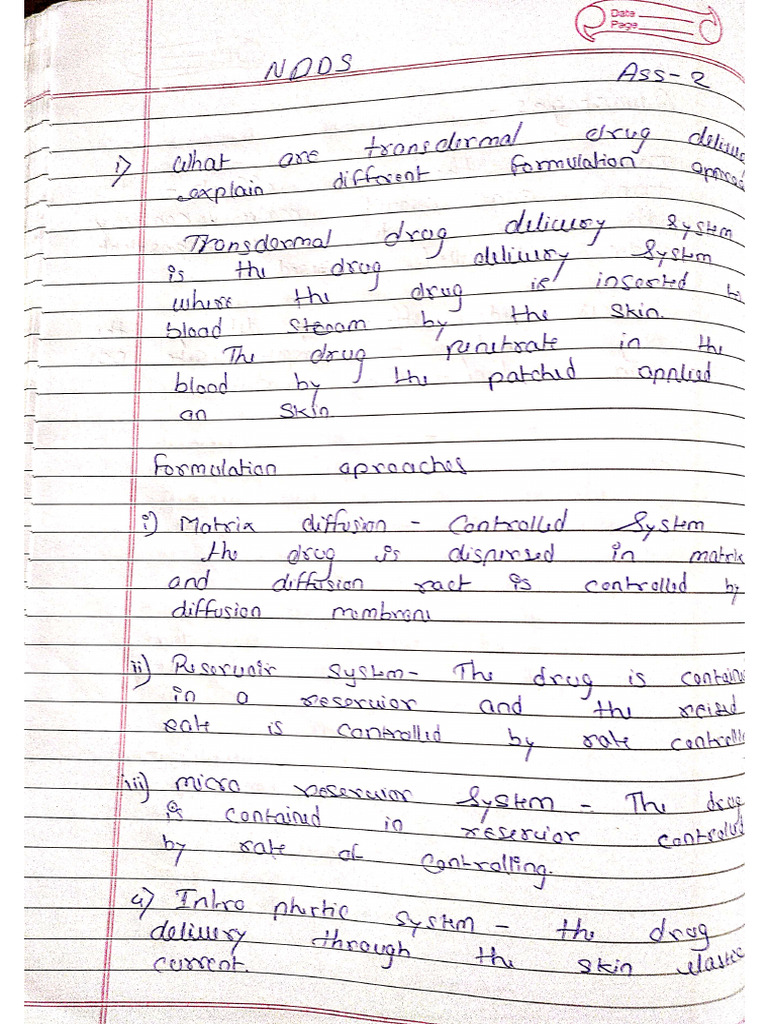 Date
Page
NDDS
Ass-2
i) What are transdermal drug delive
explain different formulation
Transdermal drug delivery System
is the drug delivery System
where the drug is inserted to
blood steam by the skin.
The drug penetrate in the
blood by the patched applied
on skin
Formulation aproaches
i) Matrix diffusion - Controlled System
the drug is dispersed in matrix
and diffusion ract is controlled by
diffusion membrane
ii) Reservoir system- The drug is contained
in a reservior and the
rate is controlled by rate controlle
iii) micro reservior System - The drug
is contained in reservior controlled
by rate of controlling.
4) Intro phortic system - the drug
delivery through the skin elastic
current.